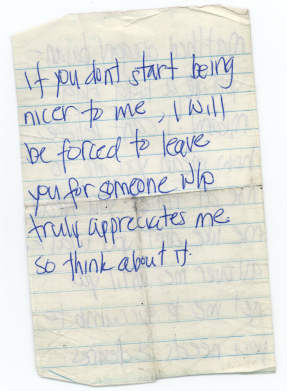 If you dont start being
nicer to me, I will
be forced to leave
you for someone who
truly appreciates me
so think about it.